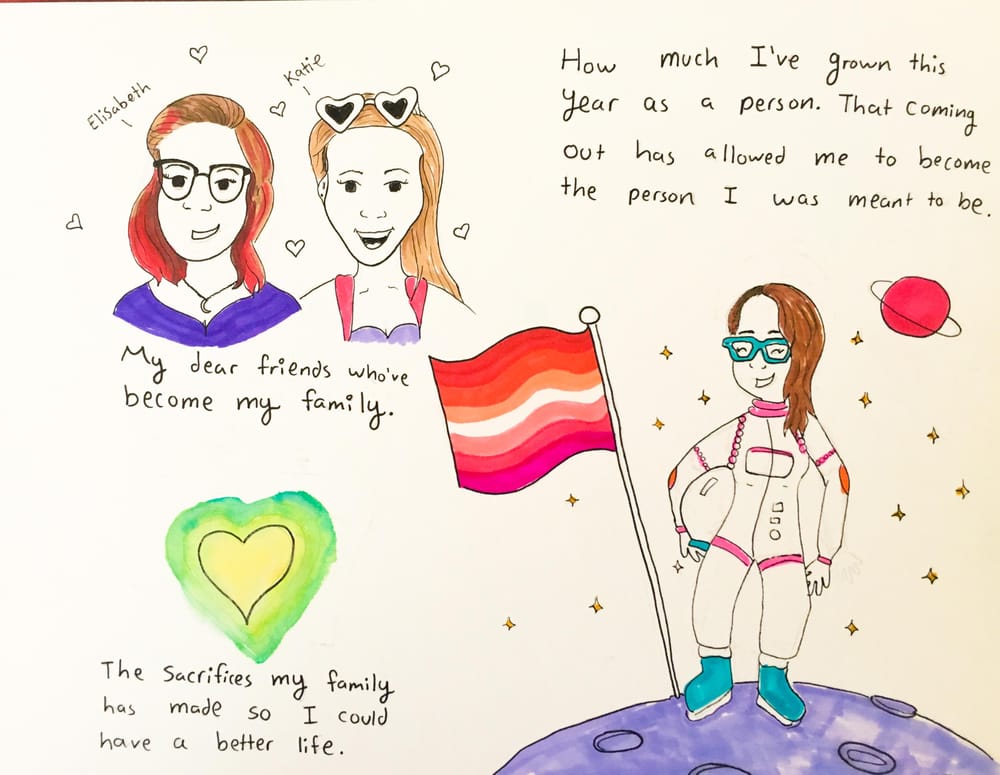 Elisabeth
Katie
My dear friends who've
become my family.
The Sacrifices my family
has made so I could
have a better life.
How much I've grown this
Year as a person. That coming
out has allowed me to become
the person I was meant to be.